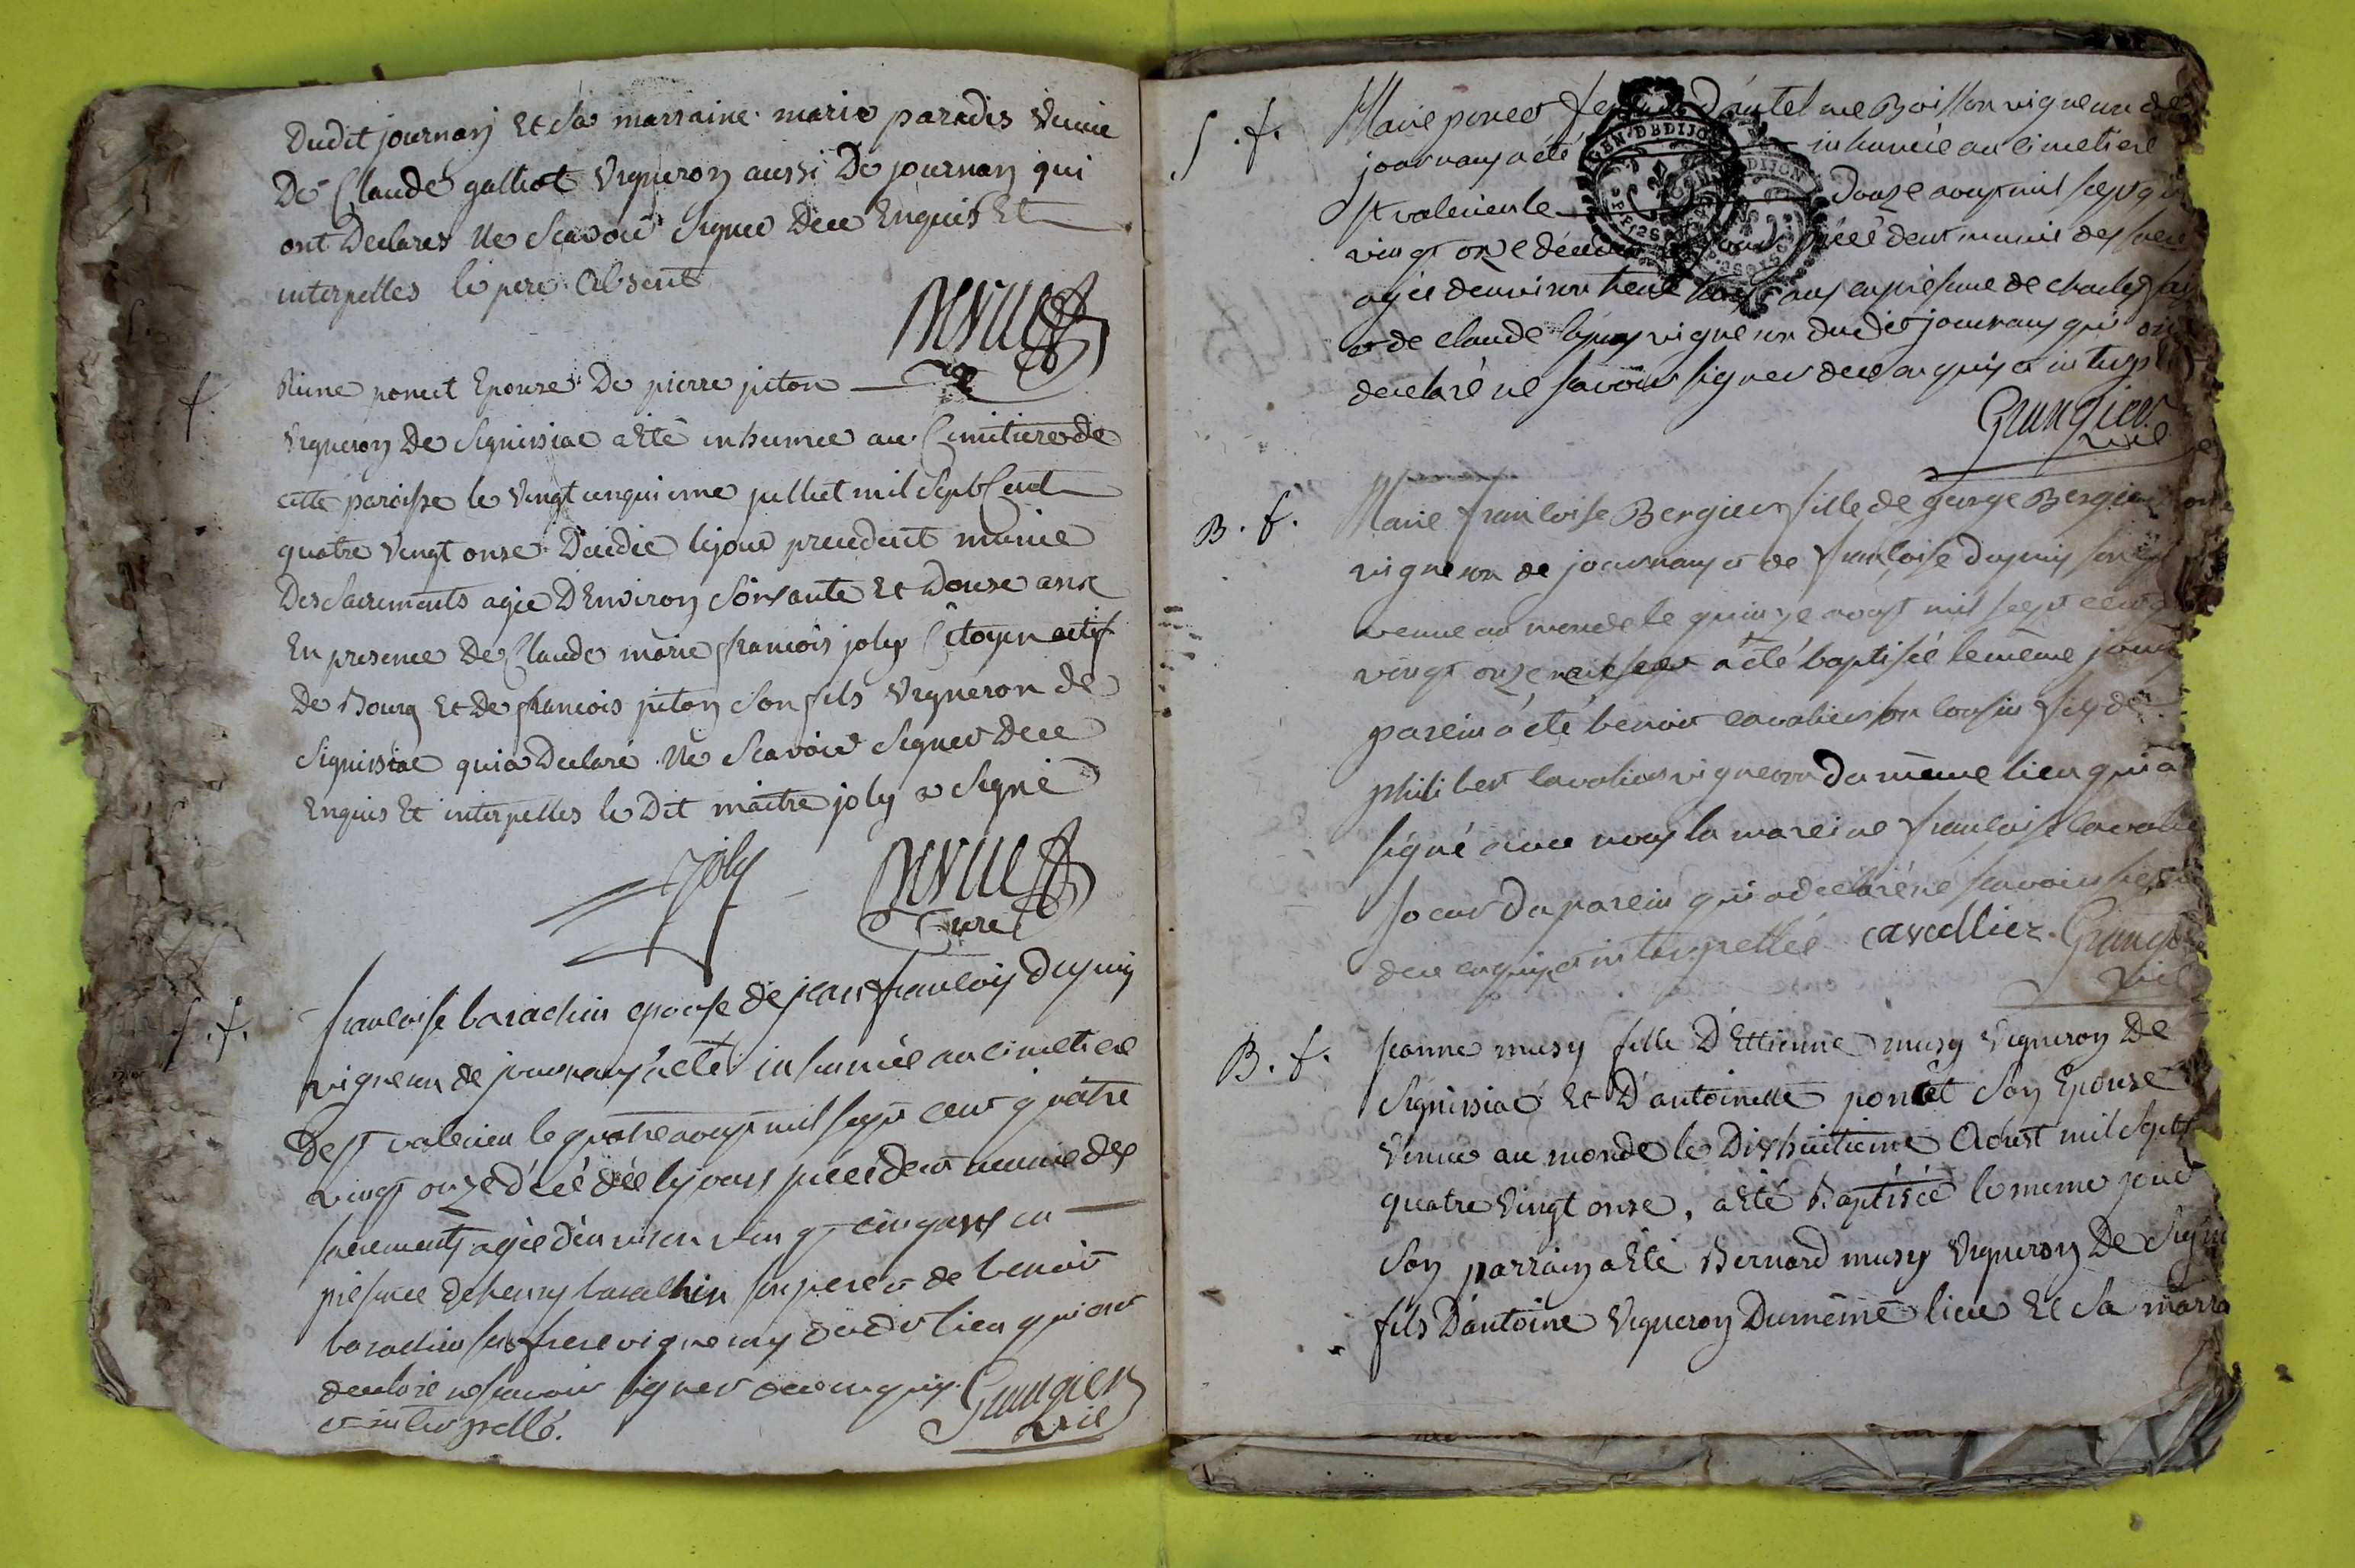 Dudit journan Et sa marraine marie paradis Veuve
De Claude galliot Vigneron aussi De journan qui
ont Declarés Ne Scavoir Signer Dece Enquis Et
interpelles le pere Absent
f.
poncet Epouse De pierre piton
Vigneron De Signissiac aEté inhumee au Cimitiere de
cette paroisse le Vingt cinquieme juilliet mil Sept Cent
quatre Vingt onze Decedée le jour precedent munie
Des Sacrements agée D'Environ Soixante Et Douze ans
En presence De Claude marie francois joly Citoyen actif
De Bourg Et De francois piton Son fils Vigneron de
Signissiac qui a Declaré Ne Scavoir Signer Dece
Enquis Et interpelles le Dit maitre joly a Signé
Joly
Curé
S. f.
francoise barachin epouse de jean francois Dupuis
vigneron de journans a eté inhumée au cimetiere
De st valerien le quatre aoust mil sept cent quatre
vingt onze décédée le jour précédent munie des
sacrements agée d'environ vingt cinq ans en
présence de henry barachin son pere et de benoit
barachin son frere vignerons dudit lieu qui ont
declaré ne savoir signer dece enquis
et interpellé.
Grangier
vic
S. f.
Marie poncet d'antelme Boisson vigneron de
journans a été inhumée au cimetiere
st valerien le douze aoust mil sept
vingt onze précédent munie des
agée denviron trente ans en présence de charles
et de claude vigneron dudit journans qui
declaré ne savoir signer dece enquis et
Grangier
vic
B. f.
Marie francoise Bergier fille de george Bergier
vigneron de journans et de francoise Dupuis
venue au monde le quinze aoust mil sept cent
vingt onze a été baptisée le même jour
parein a été benoit cavalier son cousin fils de
philibert cavalier vigneron du même lieu qui a
signé avec nous la mareine francoise
soeur du parein qui a declaré ne scavoir
dece enquise et interpellée cavallier.
vic
B. f.
jeanne musy fille D'Ettienne musy Vigneron De
Signissiac Et D'antoinette poncet Son Epouse
Venue au monde le Dixhuitieme Aoust mil Sept
quatre Vingt onze, aEté Baptisée le meme jour
Son parrain aEté Bernard musy Vigneron De
fils D'antoine Vigneron Du même lieu Et Sa